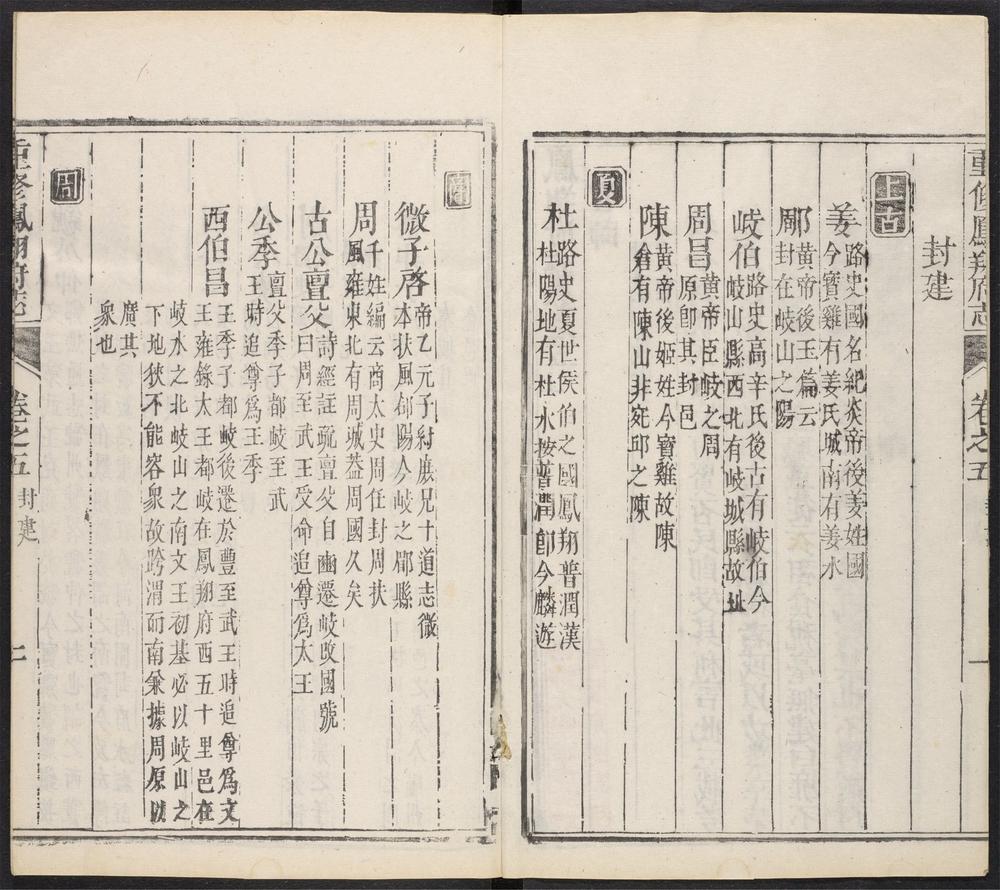 重修鳳翔府志
卷之五
一
封建
上古
姜路史國名紀炎帝後姜姓國
今寶雞有姜氏城南有姜水
郿黃帝後玉篇云
封在岐山之陽
岐伯路史高辛氏後古有岐伯今
岐山縣西北有岐城縣故址
周昌黃帝臣岐之周
原卽其封邑
陳黃帝後姬姓今寶雞故陳
倉有陳山非宛邱之陳
夏
杜路史夏世侯伯之國鳳翔普潤漢
杜陽地有杜水按普潤卽今麟遊
商
微子啓帝乙元子紂庶兄十道志微
本扶風郿陽今岐之郿縣
周千姓編云商太史周任封周扶
風雍東北有周城蓋周國久矣
古公亶父詩經註疏亶父自豳遷岐改國號
曰周至武王受命追尊爲太王
公季亶父季子都岐至武
王時追尊爲王季
西伯昌王季子都岐後遷於豐至武王時追尊爲文
王雍錄太王都岐在鳳翔府西五十里邑在
岐水之北岐山之南文王初基必以岐山之
下地狹不能容衆故跨渭而南兼據周原以
廣其
衆也
周
重修鳳翔府志
卷之五
封建
二